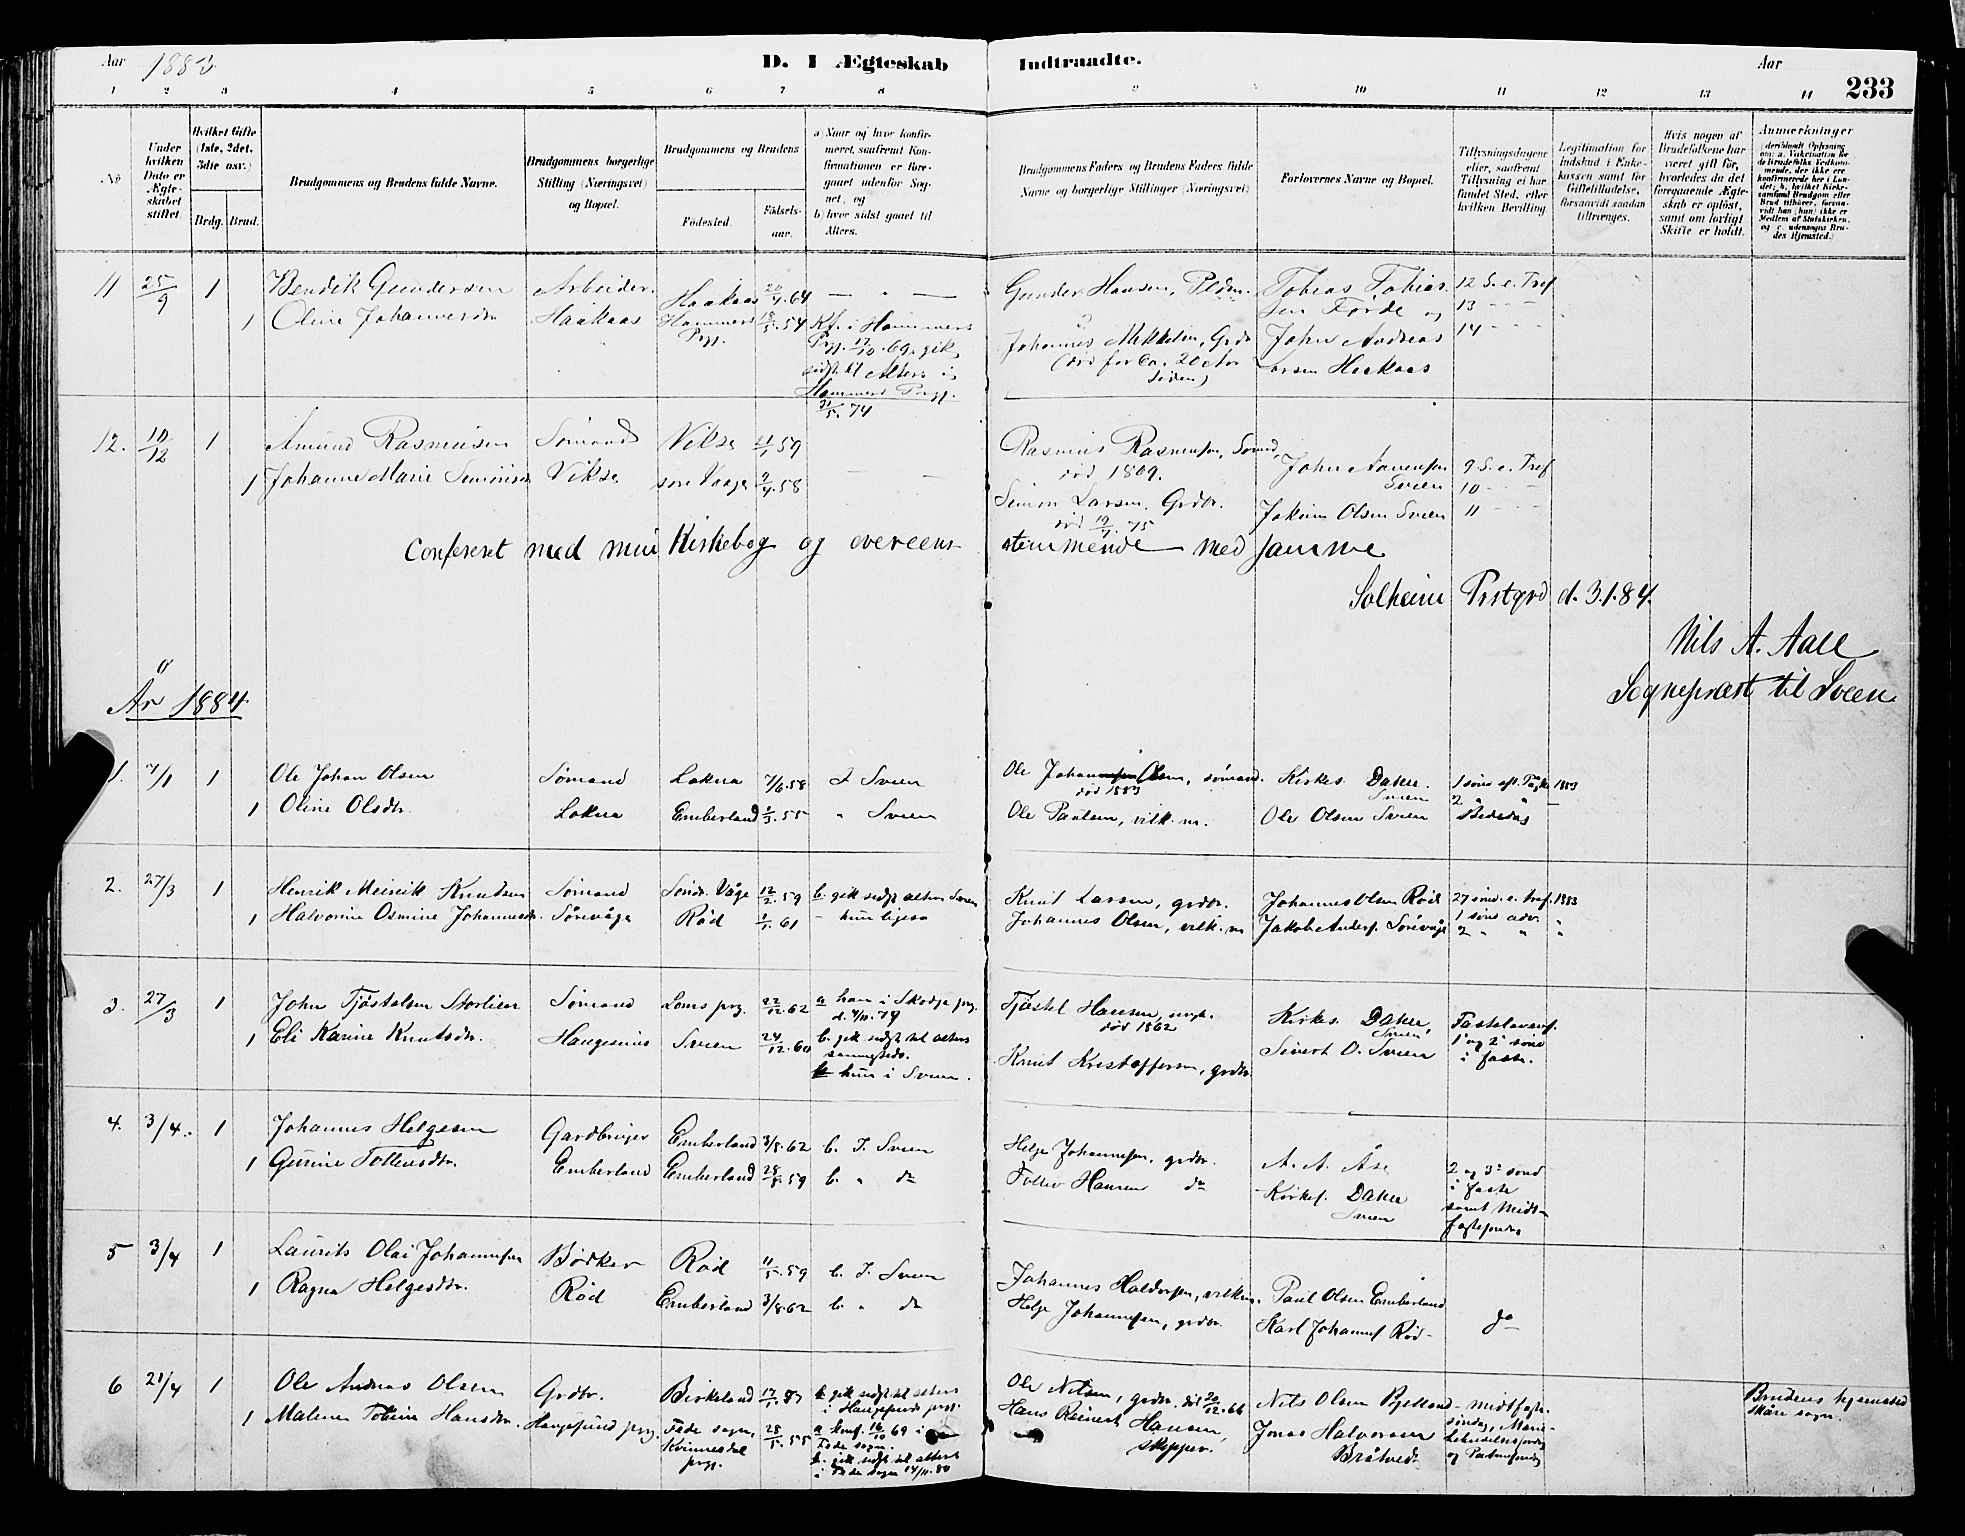 Aar 1883
D. I Ægteskab Indtraadte.
Aar
233
1 2 3 4 5 6 7 8 9 10 11 12 13 14
No
Under hvilken Dato er Ægteskabet stiftet.
Hvilket Gifte (1ste, 2det, 3die osv.)
Brdg. Brud.
Brudgommens og Brudens fulde Navne.
Brudgommens borgerlige Stilling (Næringsvei) og Bopæl.
Brudgommens og Brudens
Fødested.
Fødselsaar.
a) Naar og hvor konfirmeret, saafremt Konfirmationen er foregaaet udenfor Sognet, og
b) hvor sidst gaaet til Alters.
Brudgommens Faders og Brudens Faders fulde Navne og borgerlige Stillinger (Næringsvei)
Forlovernes Navne og Bopæl.
Tillysningsdagene eller, saafremt Tillysning ei har fundet Sted, efter hvilken Bevilling.
Legitimation for Indskud i Enkekassen samt for Giftetilladelse, forsaavidt saadan tiltrænges.
Hvis nogen af Brudefolkene har været gift før, hvorledes da det foregaaende Ægteskab er opløst, samt om lovligt Skifte er holdt.
Anmærkninger (deriblandt Oplysning om: a. Vakcination for de Brudefolks Vedkommende, der ikke ere konfirmerede her i Landet; b. hvilket Kirkesamfund Brudgom eller Brud tilhører, forsaavidt han (hun) ikke er Medlem af Statskirken, og c. udensogns Brudes Hjemsted.)
11 25/9 1 Bendik Gundersen Arbeider Haakaas 20/4.64 — " — Gunder Hansen, Tobias Tobias- 12 S. e. Tref
1 Oline Johannesdtr Haakaas Hammers Prgj. 18/5.54 Kf. i Hammers sen Førde og 13 - - -
Prgj. 17/10.69, gik Johannes Mikkelsen, Grdbr John Andreas 14 - - -
sidst til Alters i (død for ca. 20 Aar siden) Larsen Haakaas
Hammers Prgj. 31/5.74
12. 10/12 1 Amund Rasmussen Sømand Vikse 59 Rasmus Rasmussen, Sømd,
død 1869. John Aanensen Sveen 9 S. e. Tref
1 Johanne Marie Simonsdr Vikse søre Vaage 9/4.58 — — 10 - - -
Simon Larsen, Grdbr. død 19/4.75 Jokum Olsen Sveen 11 - - -
Confereret med min Kirkebog og overeens- stemmende med samme
Solheim Prstgrd d. 3.1.84.
Nils A. Aall
Sogneprest til Sveen
År 1884
1. 7/1 1 Ole Johan Olsen Sømand Lokna 7/6.58 I Sveen Ole Johan Olsen, sømand. død 1883 Kirkes. Daker. Sveen 1 sønd eft. 1883
1 Oline Olsdtr. Lokna Emberland 1/3.55 " Sveen Ole Paulsen, vilk. m. Ole Olsen Sveen 2 " " — Bededag
2. 27/3 1 Henrik Meinik Knudsen Sømand Søndr. Våge 12/2.59 b. gik sidst alters Sveen Knut Larsen, grdbr. Johannes Olsen Rød 27 sønd. e. tref. 1883
1 Halvorine Osmine Johannesdr. Sørevåge Rød 1/1.61 — hun ligesa Johannes Olsen, vilk. m Jakob Anders. Sørevåge 1 sønd adv. "
2 " " "
3. 27/3 1 John Tjøstelsen Storlien Sømand Loms prg. 22/12.62 a han i Skodje prg. d. 4/10.79 Tjøstel Hansen, død 1862 Kirkes. Daker, Sveen Fastelavensf.
1 Eli Karine Knutsdr. Haugesund Sveen 24/12.60 b. gik sidst til alters Knut Kristoffersen, grdbr. Sivert O. Sveen 1 og 2 sønd i faste.
b hun i Sveen.
4. 3/4. 1 Johannes Helgesen Gardbruger Emberland 3/8.62 b. I Sveen Helge Johannesen, grdbr. A. A. Åse 2 og 3 sønd
1 Gurine Tollevsdtr. Emberland Emberland 28/8.59 b. " do Tollev Hansen do Kirkes. Daker Sveen i faste samt Midtfastesøndag
5 3/4 1 Laurits Olai Johannesen Bødker Rød 11/5.59 b. I Sveen Johannes Haldorsen, vilkm. Paul Olsen Emberland
1 Ragna Helgesdtr. Rød Emberland 3/8.62 b. " do Helge Johannesen, grdbr. Karl Johannes Rød do
6 21/4 1 Ole Andreas Olsen Grdbr. Birkeland b gik sidst til alters i Haugesunds prgj. Ole Nilsen, grdbr. død 20/12.66 Nils Olsen Bjelland midtfastesøndag, Maribebudelsesdag og Palmesøndag Brudens hjemsted Skåre sogn.
1 Malene Tobine Hansdtr. Haugesund prg. Fede sogn, Kvinesdal prgj. 28/5.55 a. konf. 16/10 69 i Fede sogn. Hans Reinert Hansen, skipper. Jonas Halvorsen Bråtvedt
b. gik sidst til alters i Fede sogn 14/11.80